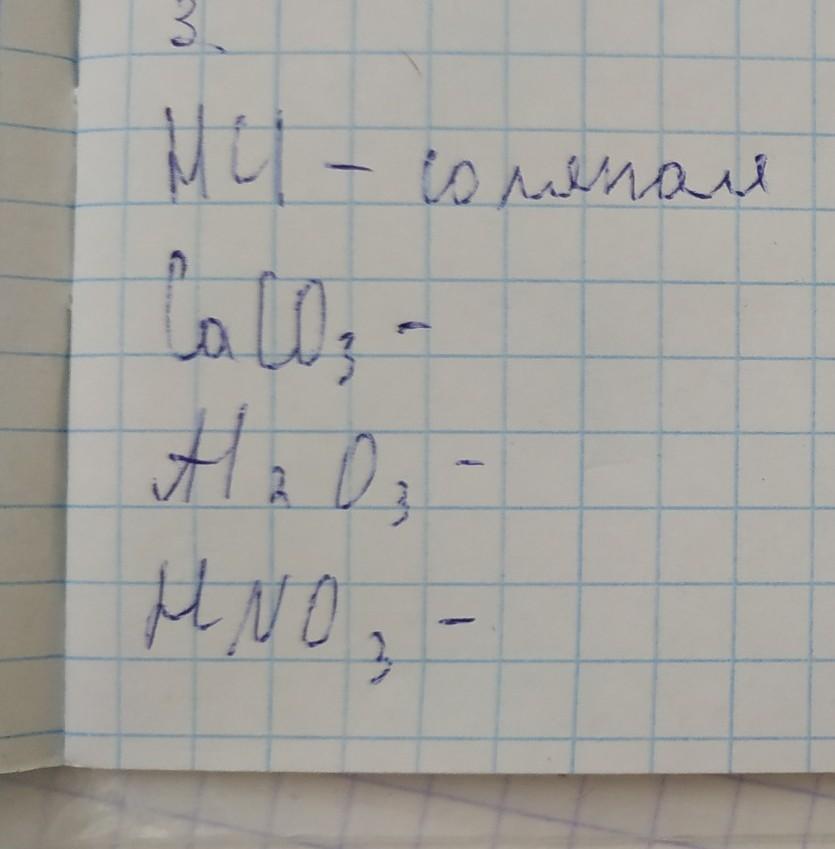 3.
HCl - соляная
CaCO₃ -
Al₂O₃ -
HNO₃ -